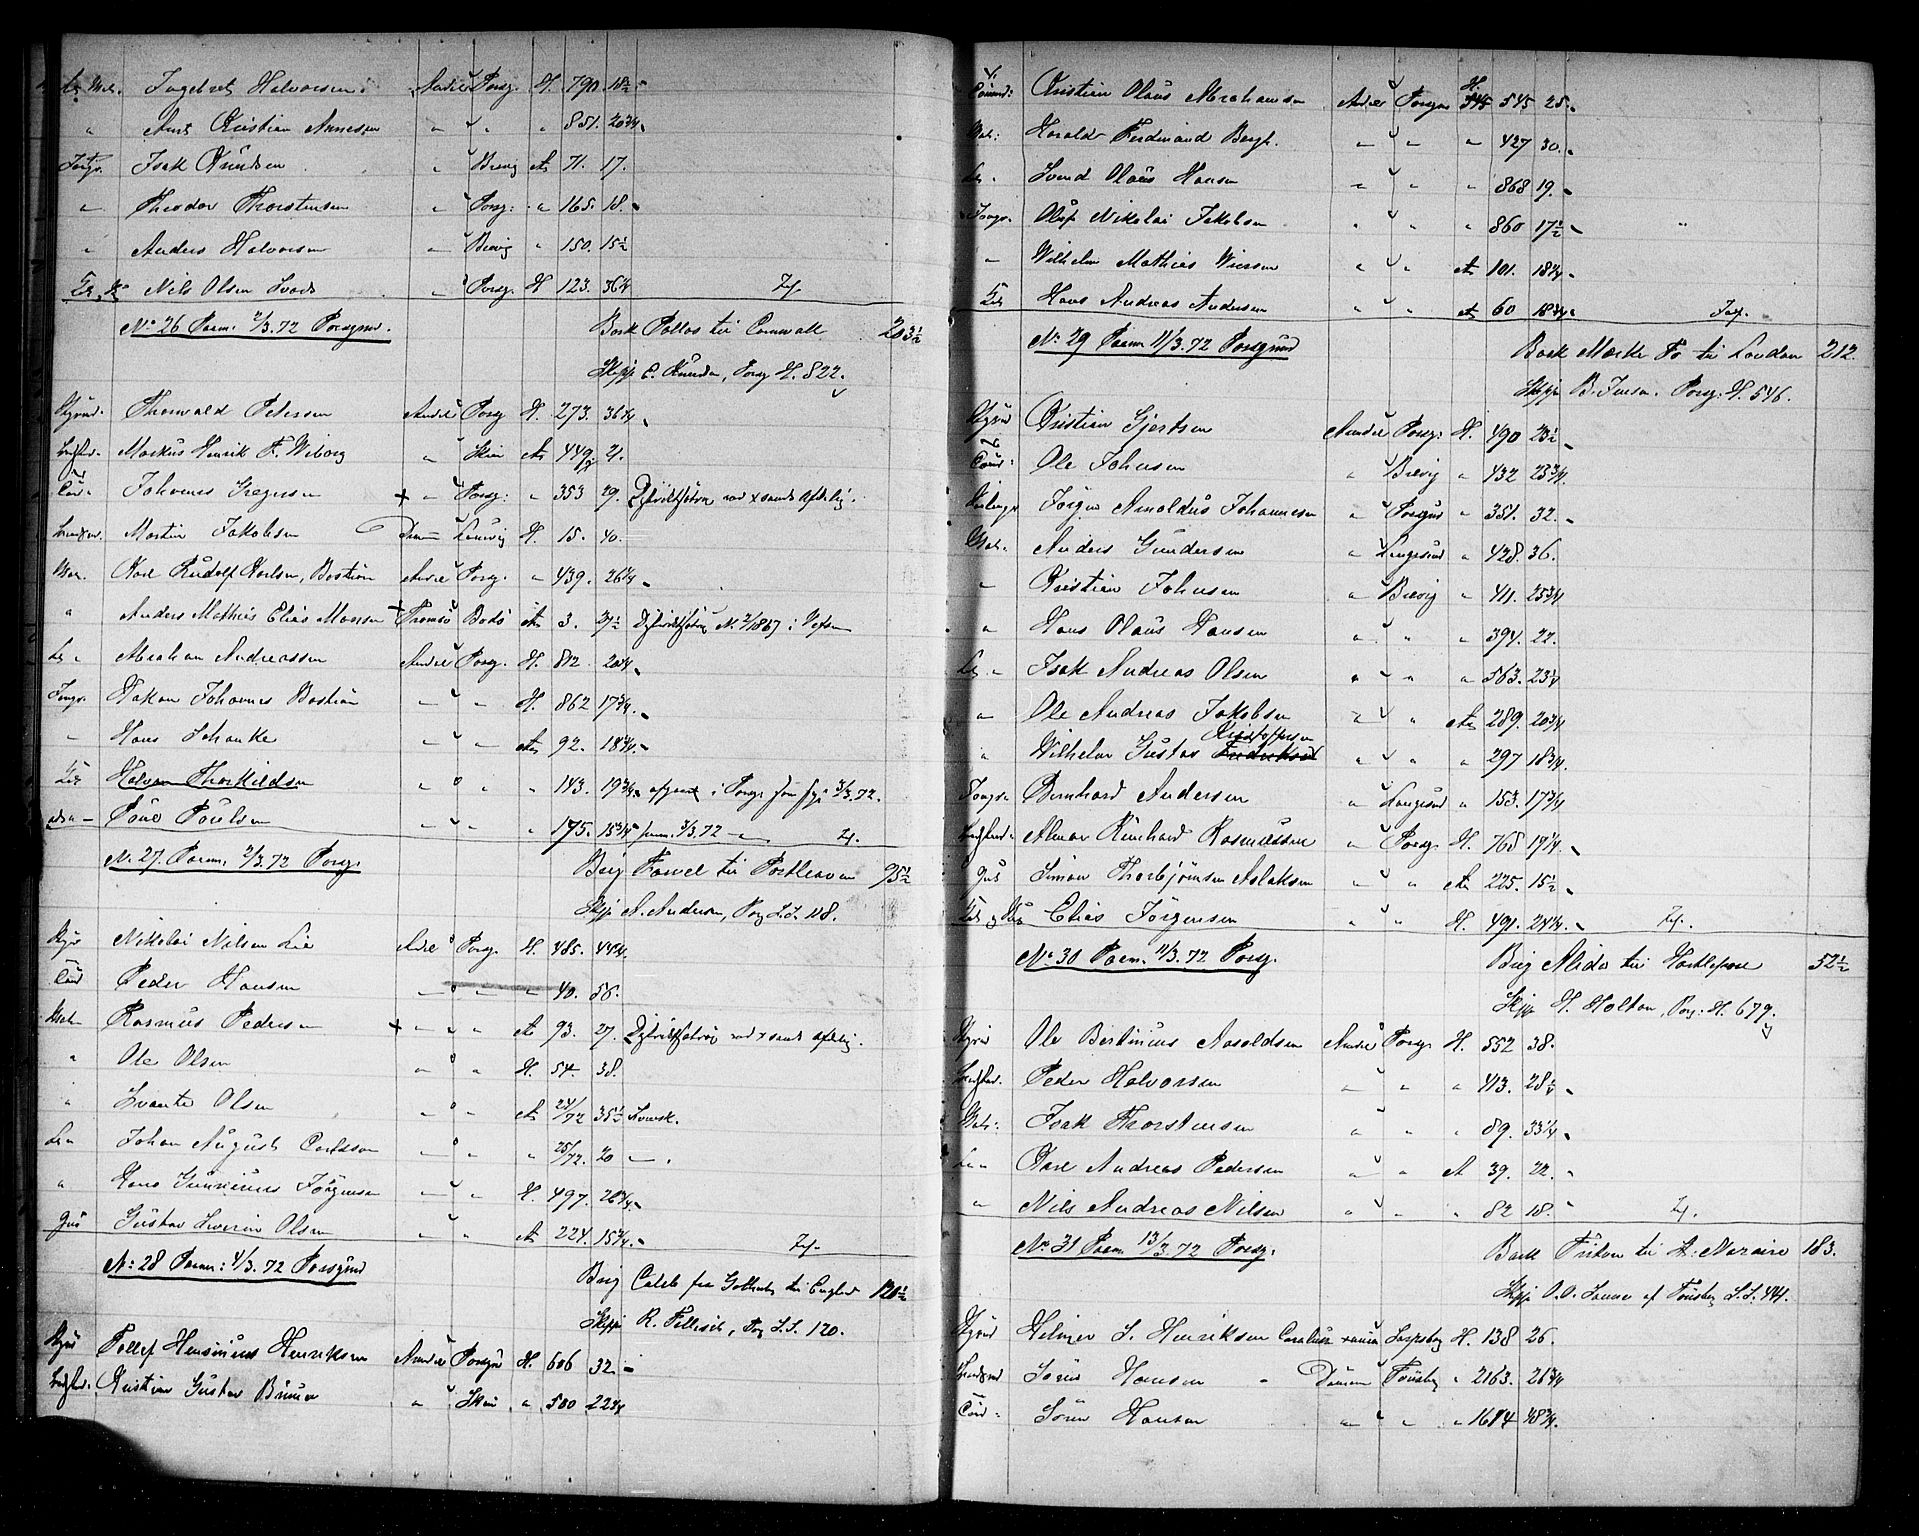 Le. Mat. Ingebret Halvorsen Andre Porsg. H. 790 18½
" Ant Kristian Annesen " " " 851. 20¾
Jungm. Isak Knudsen " Brevig An 71. 17.
" Theodor Thorstensen " Porsg: " 165. 18.
" Anders Halvorsen " Brevig " 150. 15½
Nils Olsen " Porsg. H 123. 36¼
No 26 Paam. 2/3.72 Porsgrund. Bark Pollos til Cornwall 203½
Skipp C. Knudsen, Porsg H. 822.
Styrmd. Thorvald Petersen Andre Porsg H. 273. 36¼
Markus Henrik F. Wiborg " Skien An 449. 21.
Johannes Gregersen + " Porsg: " 353 29.
Martin Jakobsen Laurvig H. 15. 40.
Mat. Karl Rudolf Karlsen, Bastian Andre Porsg. " 439. 26¼
" Anders Mathias Elias Monsen + Tromsö Bodö An 3. 27½
Le " Abraham Andreassen Andre Porsg. H. 812. 20¼
Jungm. Hakon Johannes Bastian " " H. 862 17¾
" Hans Schanke " " An 92. 18¾
Halvor Thorkildsen " " " 143. 19¾ afgaaet i Porsg 3/3.72.
Poul Poulsen " " " 175. 15¾ paam. 3/3.72
No 27. Paam. 2/3.72 Porsg. Brig Farvel til Porthleven 95½
Skipp A. Andersen, Porsg L.S. 118.
Styr Nikolai Nilsen Lie Andre Porsg. H. 485. 44¾
Peder Hansen " " " 40. 56.
Mat Rasmus Pedersen + " " An 93. 27.
" Ole Olsen " " H. 54. 38.
" Svante Olsen " " An 24/72 35½ Svensk.
Le " Johan August Carlsson " " " 25/72. 20 "
" Hans Gunerius Jörgensen " " H. 497. 20¾
Gus Gustav Severin Olsen " " An 224. 15¾
No: 28 Paam: 4/3.72 Porsgrund Brig Caleb fra Gothenb. til England 120½
Skipp R. Tellefsen, Porsg L.S. 120.
Styr Tellef Hensinius Henriksen Andre Porsgr H. 606 32
Kristian Gustav Bruun " Skien " 500 22¾
Kristian Olaus Abrahamsen Andre Porsgr H. 545 25.
Mat: Harald Ferdinand Bergh. " " " 427 30.
Le. Svend Olaus Hansen " " " 868 19.
Jungm. Oluf Nikolai Jakobsen " " " 860 17½
" Wilhelm Mathias " " An 101. 18¾
Hans Andreas Andersen " " An 60 18¾
No 29 Paam 11/3.72 Porsgrund Bark til London 212.
Skipp B. Iversen. Porsg. H. 546.
Styrmd Kristian Gjertsen Andre Porsg: H. 490 23½
Ole Johnsen " Brevig " 432 23¾
Jörgen Arnoldus Johannesen " Porsgrund " 351. 32.
Mat. Anders Gundersen " Langesund " 428. 36.
" Kristian Johnsen " Brevig " 411. 25¾
" Hans Olaus Hansen " " " 394. 22.
Le. " Isak Andreas Olsen " " " 563. 23¼
" Ole Andreas Jakobsen " " An 289. 20¾
" Wilhelm Gustav Kristoffersen " " " 297 18¾
Jungm. Bernhard Andersen " Langesund " 153. 17¾
Almar Reinhard Rasmussen " Porsg. H. 768 19¼
Gus Simon Thorbjörnsen Aslaksen " " An 225. 15½
Elias Jörgensen " " H. 491. 24¼
No 30 Paam. 11/3.72 Porsg. Brig Alida til Hartlepool 52½
Skipp H. Holton, Porsg. H. 679.
Styrmd Ole Bertinius Aroldsen Andre Porsg. H. 552 38.
Peder Halvorsen " " " 413. 28½
Mat: Isak Thorstensen " " " 89. 33¼
Le " Karl Andreas Pedersen " " A 39. 22.
" Nils Andreas Nilsen " " " 82 18.
No 31 Paam 13/3.72 Porsg. Bark Triton til 183.
Skipp O.O. af Tönsberg L.S. 441.
Styrmd S. Henriksen Sarpsborg H. 138 26.
Sören Hansen Tönsberg " 2163. 26¾
Sören Hansen " " " 1614 48¾.